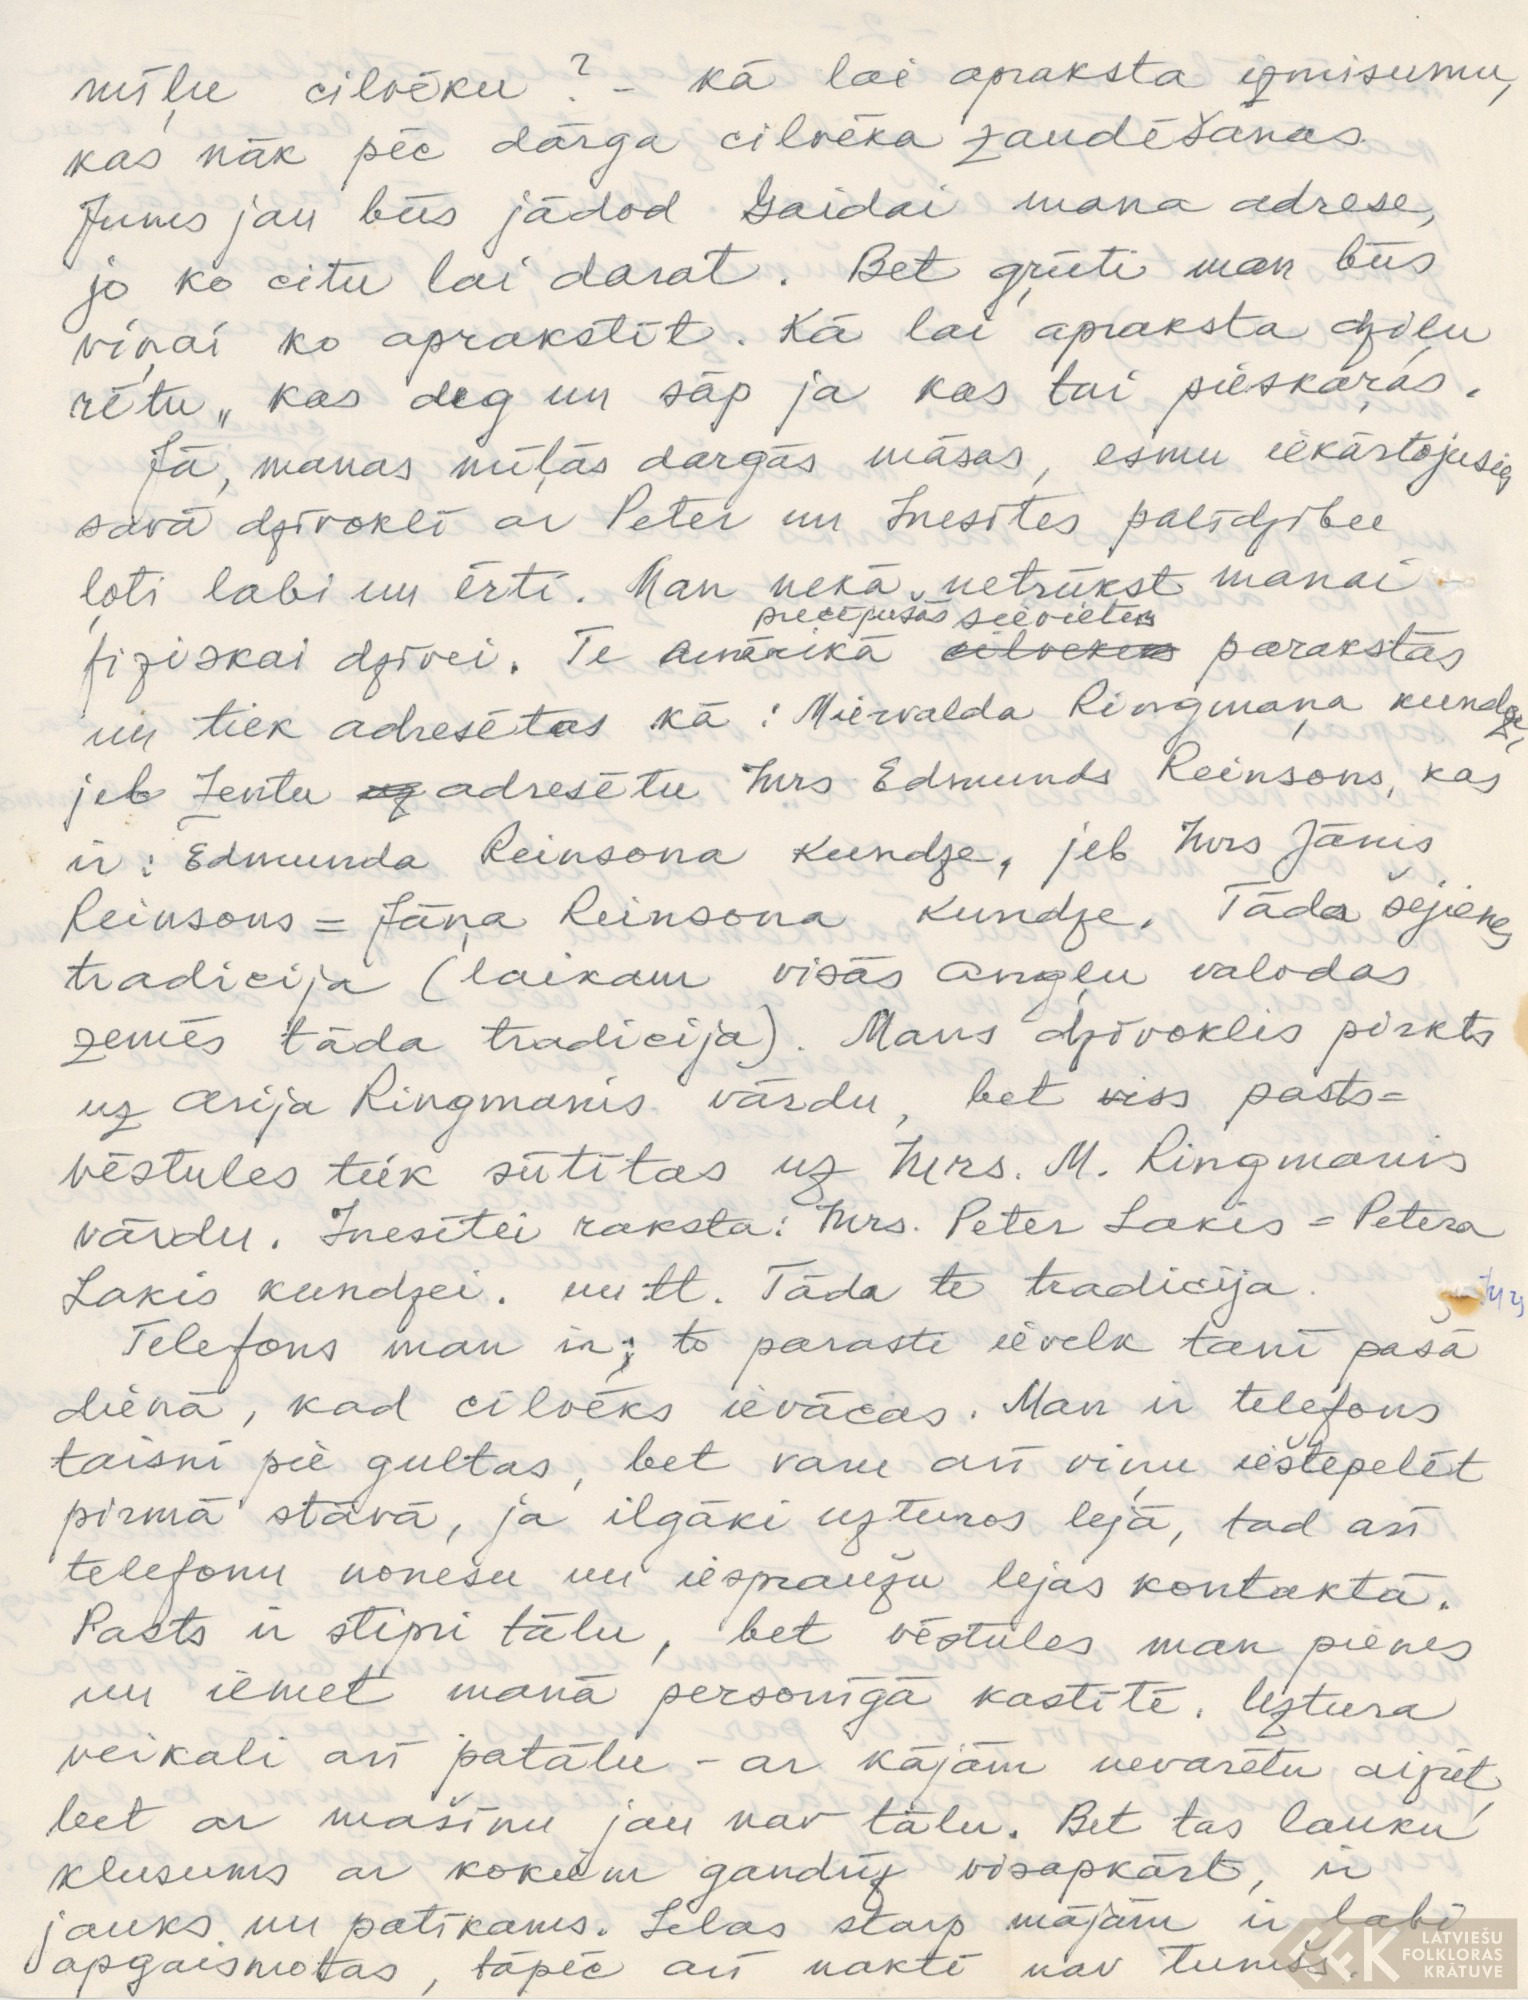 mīļu cilvēku? – Kā lai apraksta izmisumu,
kas nāk pēc dārga cilvēka zaudēšanas.
Jums jau būs jādod Gaidai mana adrese,
jo ko citu lai darat. Bet grūti man būs
viņai ko aprakstīt. Kā lai apraksta dziļu
rētu, kas deg un sāp ja kas tai pieskaŗas.
Jā, manas mīļās dārgās māsas, esmu iekārtojusies
savā dzīvoklī ar Peter un Inesītes palīdzību
ļoti labi un ērti. Man nekā netrūkst manai
precējušās sievietes
fiziskai dzīvei. Te Amērikā cilvekus parakstās
un tiek adresētas kā: Miervalda Ringmaņa kundze,
jeb Zentu adresētu Mrs Edmunds Reinsons, kas
ir: Edmunda Reinsona kundze, jeb Mrs Jānis
Reinsons = Jāņa Reinsona kundze. Tāda šejienes
tradicija (laikam visās angļu valodas
zemēs tāda tradicija). Mans dzīvoklis pirkts
uz Arija Ringmanis vārdu, bet viss pasts=
vēstules tiek sūtītas uz Mrs. M. Ringmanis
vārdu. Inesītei raksta: Mrs. Peter Lakis = Petera
Lakis kundzei. un tt. Tāda te tradicija.
Telefons man ir; to parasti ievelk tanī pašā
dienā, kad cilvēks ievācas. Man ir telefons
taisni pie gultas, bet varu arī viņu ieštepelēt
pirmā stāvā, ja ilgāki uzturos lejā, tad arī
telefonu nonesu un iespraužu lejas kontaktā.
Pasts ir stipri tālu, bet vēstules man pienes
un iemet manā personīgā kastītē. Uztura
veikali arī patālu – ar kājām nevarētu aiziet,
bet ar mašīnu jau nav tālu. Bet tas lauku
klusums ar kokiem gandrīz visapkārt, ir
jauks un patīkams. Ielas starp mājām ir labi
apgaismotas, tāpēc arī naktī nav tumšs.
LATVIEŠU
FOLKLORAS
KRĀTUVE